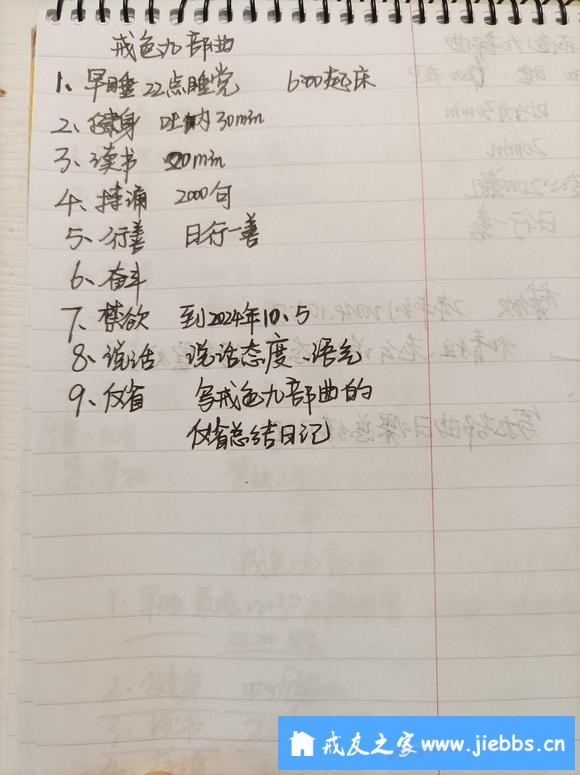 戒色九部曲
1、早睡 22点睡觉 6:00起床
2、健身 吐纳30min
3、读书 20min
4、持诵 2000句
5、行善 日行一善
6、奋斗
7、禁欲 到2024年10.5
8、说话 说话态度、语气
9、反省 写戒色九部曲的
反省总结日记
戒友之家www.jiebbs.cn